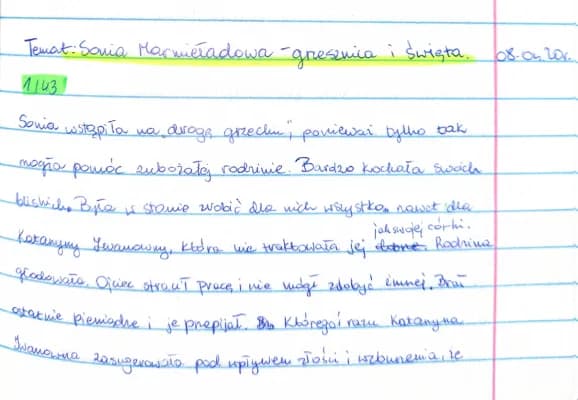 Temat: Sonia Marmieładowa - grzesznica i święta. 08.04.20r.
1/143
Sonia wstąpiła na „drogę grzechu", ponieważ tylko tak
mogła pomóc zubożałej rodzinie. Bardzo kochała swoich
bliskich. Była w stanie zrobić dla nich wszystko, nawet dla
jak swojej córki.
Katarzyny Iwanowny, która nie traktowała jej Rodzina
głodowała. Ojciec stracił pracę i nie mógł zdobyć innej. Brał
ostatnie pieniądze i je przepijał. Któregoś razu Katarzyna
Iwanowna zasugerowała pod wpływem złości i wzburzenia, że